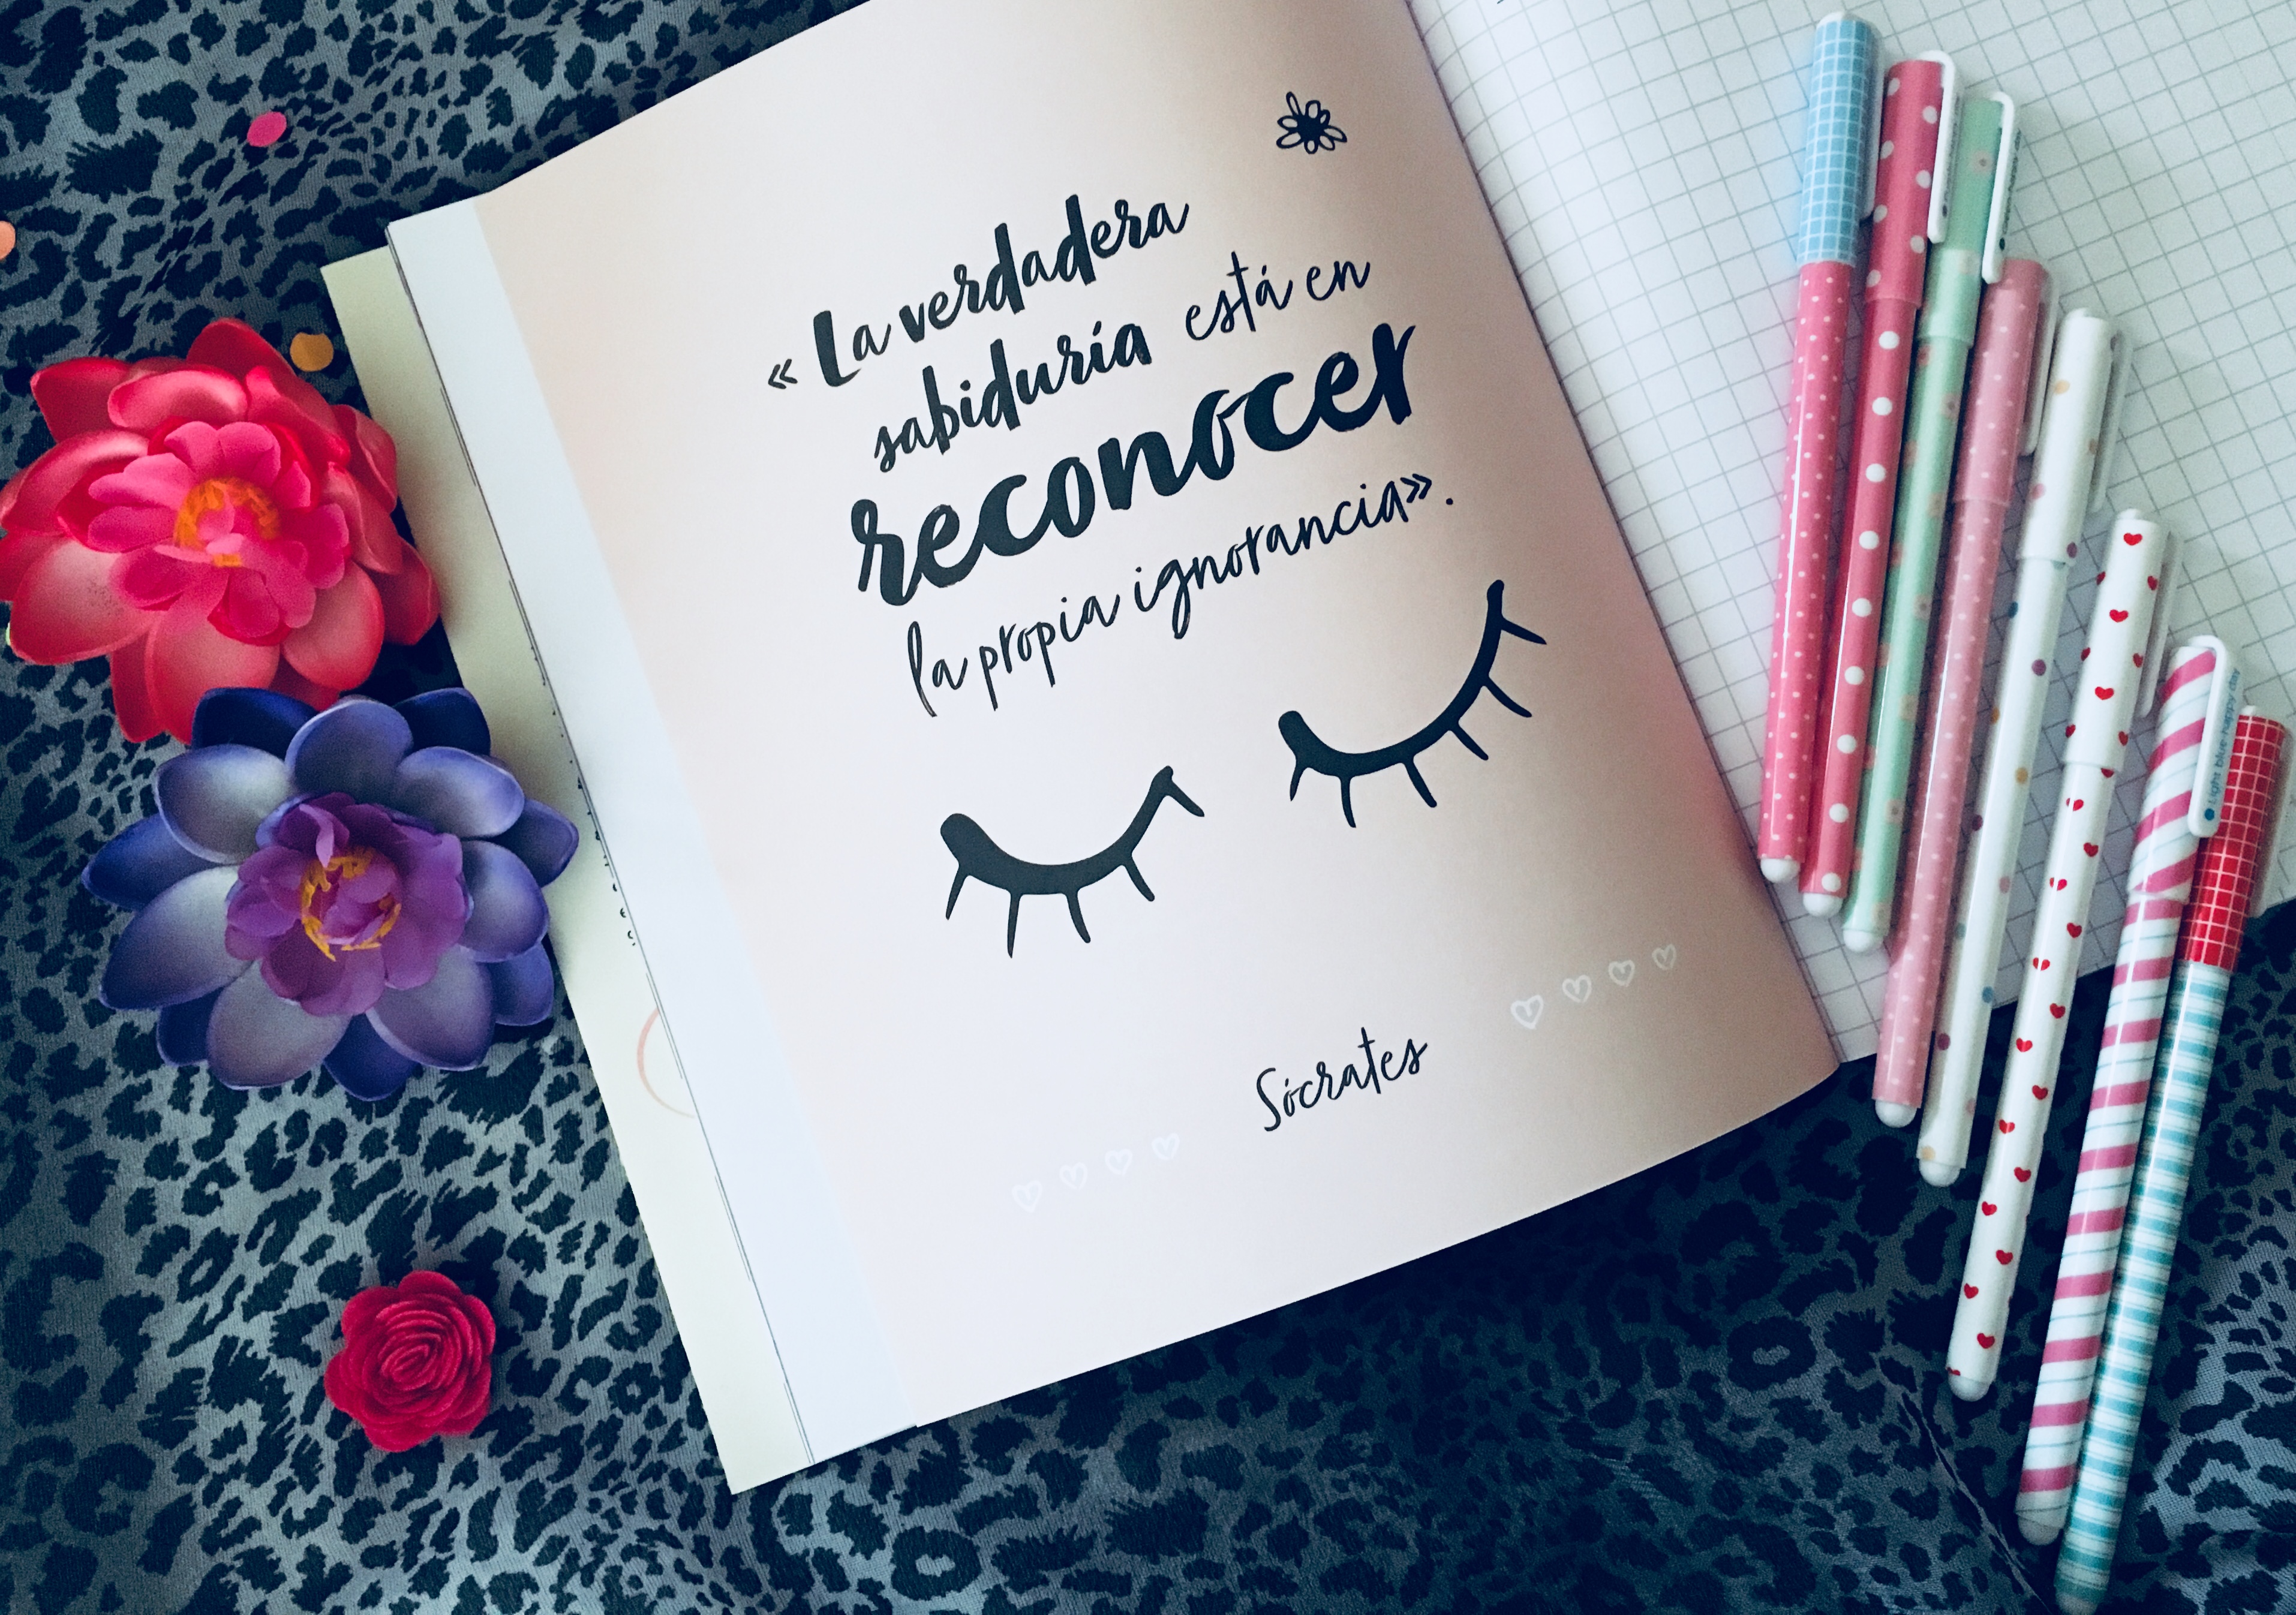 «La verdadera
sabiduría está en
reconocer
la propia ignorancia».
Sócrates
Light blue-happy day